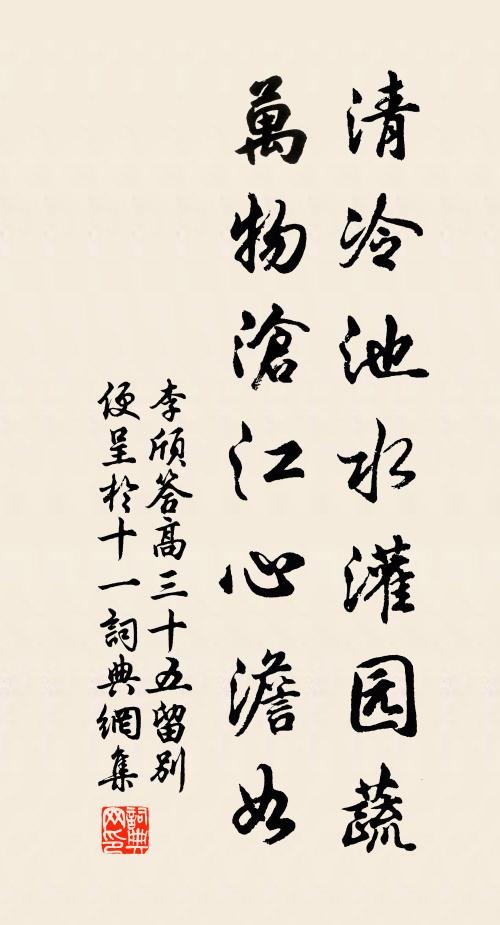 清冷池水灌园蔬
萬物滄江心澹如
李頎答高三十五留别
便呈於十一詞典網集
詞典
网印